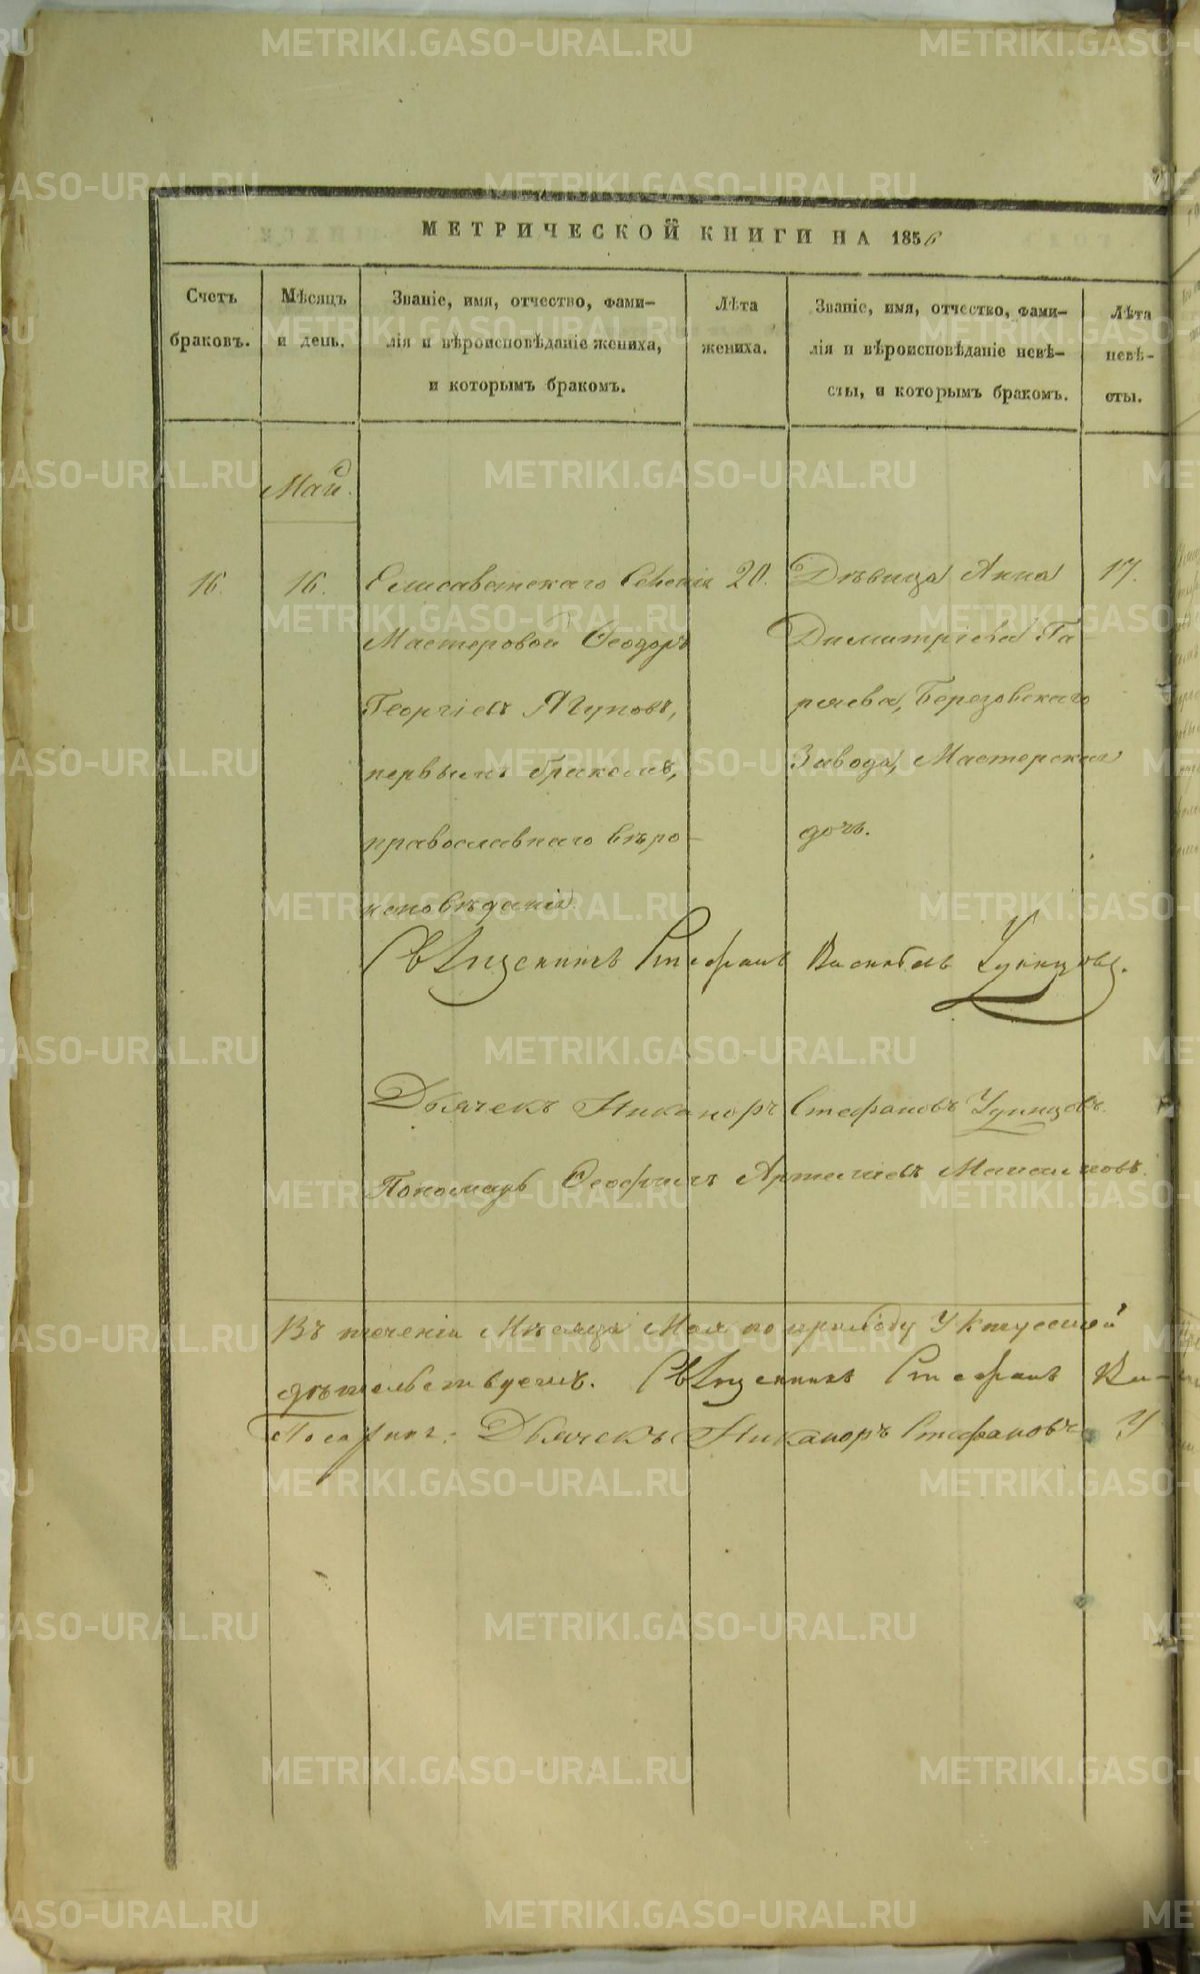 МЕТРИЧЕСКОЙ КНИГИ НА 1856
Счетъ браковъ.
Мѣсяцъ и день.
Званіе, имя, отчество, фами-
лія и вѣроисповѣданіе жениха,
и которымъ бракомъ.
Лѣта жениха.
Званіе, имя, отчество, фами-
лія и вѣроисповѣданіе невѣ-
сты, и которымъ бракомъ.
Лѣта невѣ-
сты.
Май.
16.
16.
Елисаветскаго Селенія
Мастеровой Ѳеодоръ
Георгіевъ Ягуповъ,
первымъ бракомъ,
православнаго вѣро-
исповѣданія.
20.
Дѣвица Анна
Димитріева Га-
ряева, Березовскаго
Завода, Мастерская
дочь.
17.
Священникъ Стефанъ Васильевъ Удинцовъ.
Дьячекъ Никаноръ Стефановъ Удинцовъ.
Пономарь Ѳеофилъ Артемьевъ
Въ теченіи Мѣсяца Мая по приходу Уктусской
Священникъ Стефанъ Ва-
Дьячекъ Никаноръ Стефановъ У
METRIKI.GASO-URAL.RU